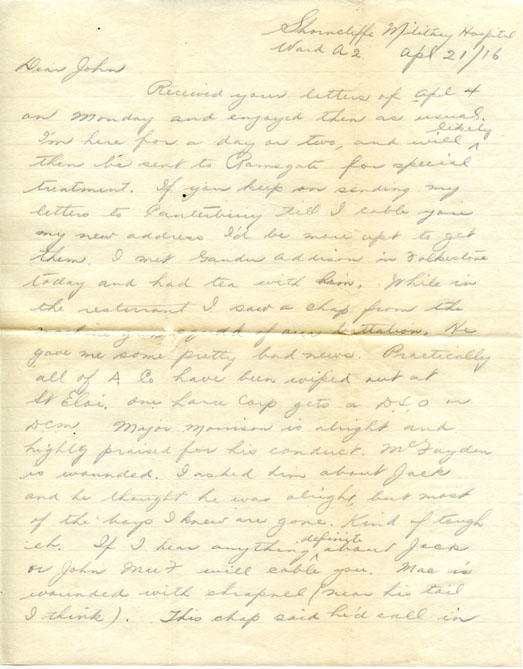 Shorncliffe Military Hospital
Ward A2 Apl 21/16
Dear John
Received your letters of Apl 4
on Monday and enjoyed them as usual.
I'm here for a day or two, and will likely
then be sent to Ramsgate for special
treatment. If you keep on sending my
letters to Canterbury till I cable you
my new address I'd be more apt to get
them. I met Gander Addison in Folkestone
today and had tea with him. While in
the resturrant I saw a chap from the
machine gun squad of our battalion. He
gave me some pretty bad news. Practically
all of A Co have been wiped out at
St Eloi. One lance Corp gets a D.S.O or
DCM. Major Morrison is alright and
highly praised for his conduct. McFayden
is wounded. I asked him about Jack
and he thought he was alright, but most
of the boys I knew are gone. Kind of tough
eh. If I hear anything definite about Jack
or John MacF will cable you. Mac is
wounded with shrapnel (near his tail
I think). This chap said he'd call in